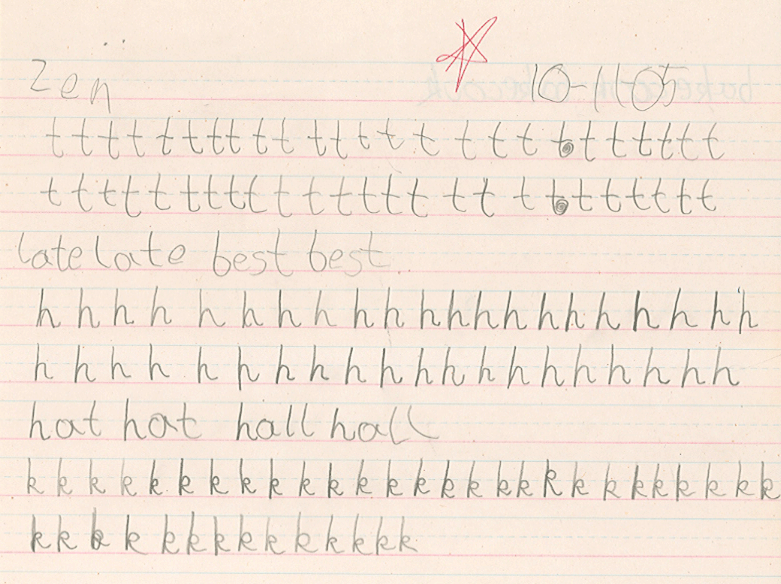 Zen 10-11-05
t t t t t t t t t t t t t t t t t t t t t t t t t
t t t t t t t t t t t t t t t t t t t t t t t t t
late late best best
h h h h h h h h h h h h h h h h h h h h h
h h h h h h h h h h h h h h h h h h h h
hat hat hall hall
k k k k k k k k k k k k k k k k k k k k k k k k k k k
k k k k k k k k k k k k k k